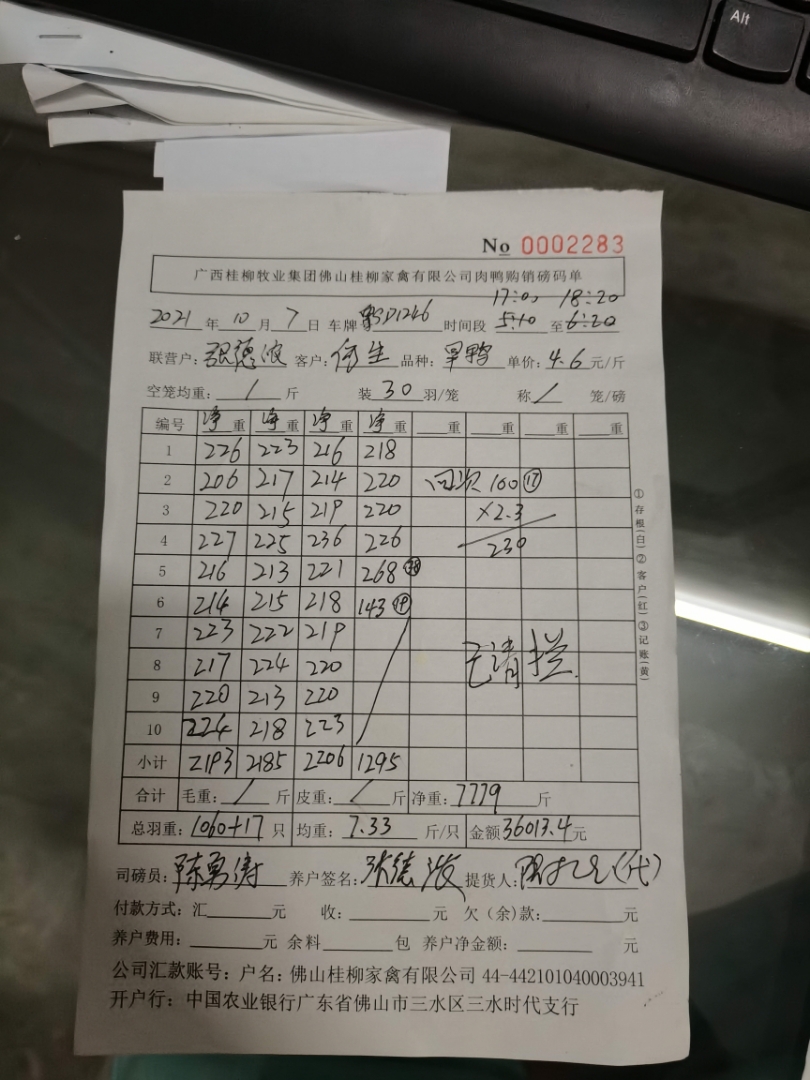 Alt
No 0002283
广西桂柳牧业集团佛山桂柳家禽有限公司肉鸭购销磅码单
17:00 18:20
2021 年 10 月 7 日 车牌 粤SD1246 时间段 5:40 至 6:20
联营户: 张德波 客户: 何生 品种: 旱鸭 单价: 4.6 元/斤
空笼均重: / 斤 装 30 羽/笼 称 / 笼/磅
编号 净重 净重 净重 净重 重 重 重 重
1 226 223 216 218
2 206 217 214 220 回次 100 ⑰
3 220 215 219 220 ×2.3
4 227 225 236 226 230
5 216 213 221 268 ㊳
6 214 215 218 143 ⑲
7 223 222 219
8 217 224 220 已清拦
9 220 213 220
10 224 218 223
小计 2193 2185 2206 1295
合计 毛重: / 斤 皮重: / 斤 净重: 7779 斤
总羽重: 1060+17 只 均重: 7.33 斤/只 金额 36013.4 元
司磅员: 陈勇涛 养户签名: 张德波 提货人: (代)
付款方式: 汇 元 收: 元 欠(余)款: 元
养户费用: 元 余料 包 养户净金额: 元
公司汇款账号: 户名: 佛山桂柳家禽有限公司 44-442101040003941
开户行: 中国农业银行广东省佛山市三水区三水时代支行
①存根(白)②客户(红)③记账(黄)